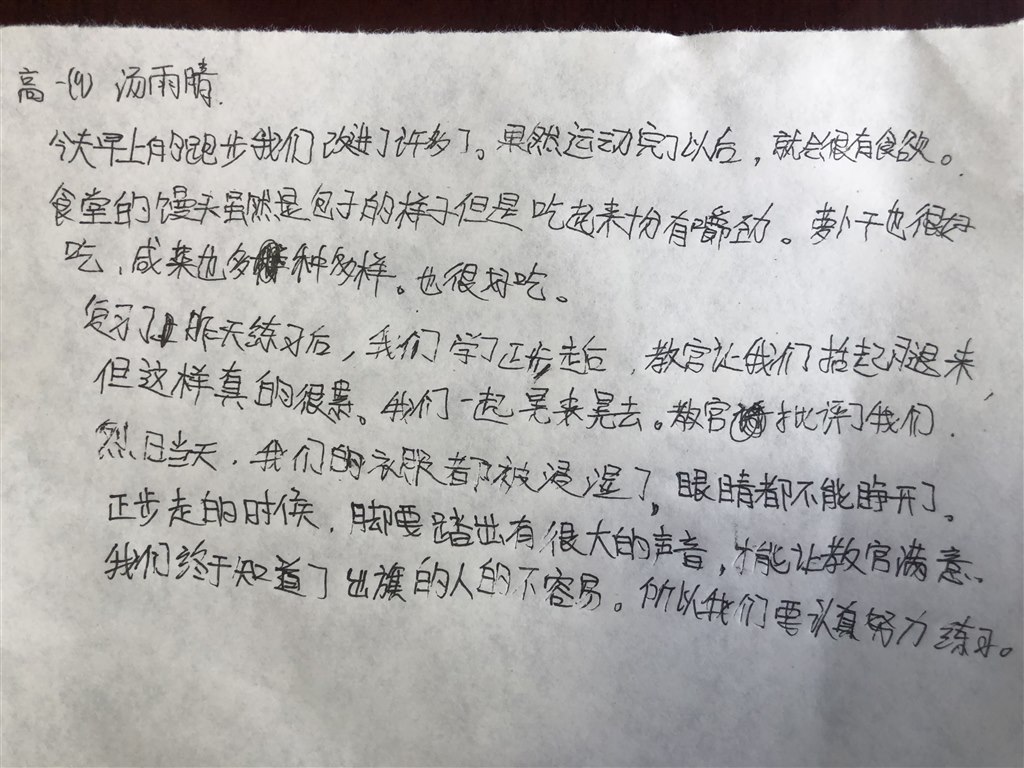 高一(9) 汤雨晴.
今天早上的跑步我们改进了许多了。果然运动完了以后，就会很有食欲。
食堂的馒头虽然是包子的样子但是吃起来十份有嚼劲。萝卜干也很好
吃，咸菜也多种多样。也很好吃。
复习了昨天练习后，我们学了正步走后，教官让我们抬起腿来，
但这样真的很累。我们一起晃来晃去。教官批评了我们.
烈日当天，我们的衣服都被浸湿了，眼睛都不能睁开了。
正步走的时候，脚要踏出有很大的声音，才能让教官满意.
我们终于知道了出旗的人的不容易。所以我们要认真努力练习。